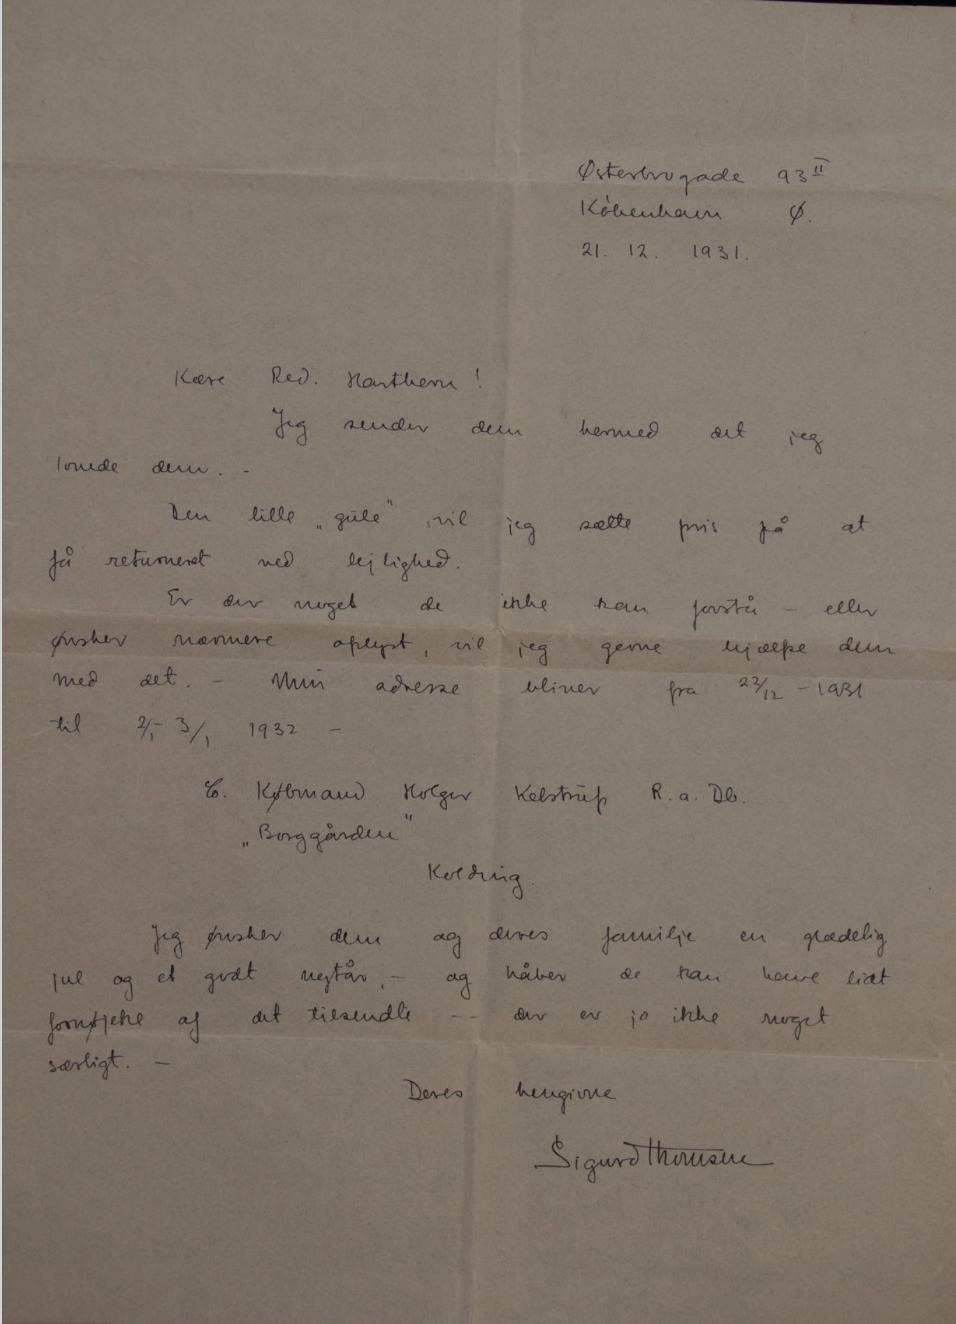 Østerbrogade 93 II
København Ø.
21. 12. 1931.
Kære Red. Harthern!
Jeg sender dem hermed det jeg
lovede dem. -
Den lille „gule" vil jeg sætte pris på at
få returneret ved lejlighed.
Er der noget de ikke kan forstå - eller
ønsker nærmere oplyst, vil jeg gerne hjælpe dem
med det. - Min adresse bliver fra 22/12 - 1931
til 2/1- 3/1 1932 -
Købmand Holger Kelstrup R. a. Db.
„Borggården"
Kolding.
Jeg ønsker dem og deres familje en glædelig
jul og et godt nytår, - og håber de kan have lidt
fornøjelse af det tilsendte -- der er jo ikke noget
særligt. -
Deres hengivne
Sigurd Thomsen